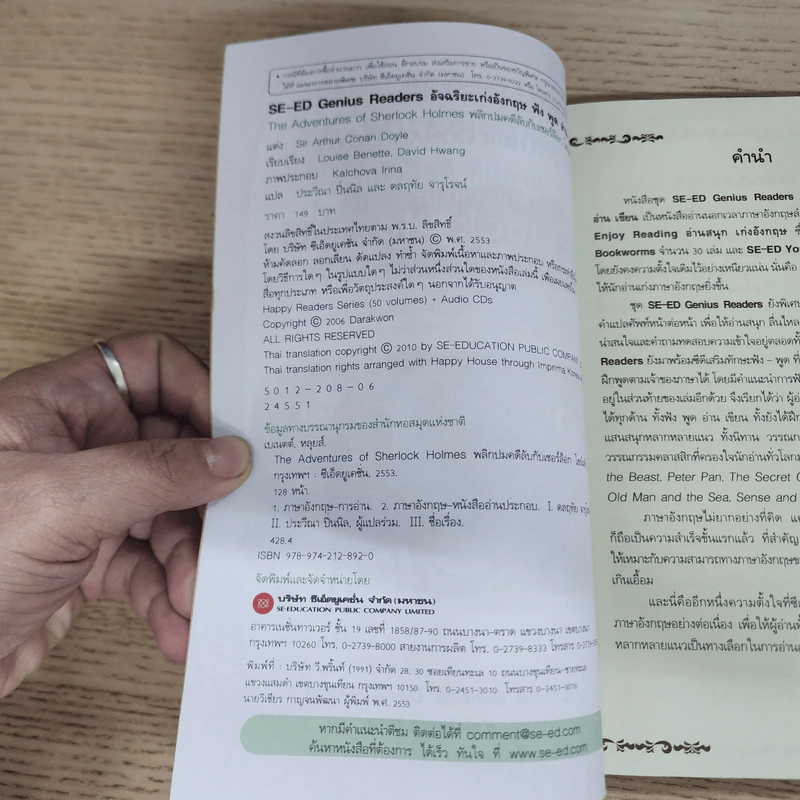 • กรณีที่ต้องการซื้อจำนวนมาก เพื่อใช้สอน ฝึกอบรม ส่งเสริมการขาย หรือเป็นของขวัญพิเศษ
ได้ที่ แผนกการตลาดพิเศษ บริษัท ซีเอ็ดยูเคชั่น จำกัด (มหาชน) โทร. 0-2739-8222 หรือ
SE-ED Genius Readers อัจฉริยะเก่งอังกฤษ ฟัง พูด
The Adventures of Sherlock Holmes พลิกปมคดีลับกับเชอร์ล็อก
แต่ง Sir Arthur Conan Doyle
เรียบเรียง Louise Benette, David Hwang
ภาพประกอบ Kalchova Irina
แปล ประวีณา ปิ่นนิล และ ดลฤทัย จารุโรจน์
ราคา 149 บาท
สงวนลิขสิทธิ์ในประเทศไทยตาม พ.ร.บ. ลิขสิทธิ์
โดย บริษัท ซีเอ็ดยูเคชั่น จำกัด (มหาชน) © พ.ศ. 2553
ห้ามคัดลอก ลอกเลียน ดัดแปลง ทำซ้ำ จัดพิมพ์เนื้อหาและภาพประกอบ หรือกระทำ
โดยวิธีการใดๆ ในรูปแบบใดๆ ไม่ว่าส่วนหนึ่งส่วนใดของหนังสือเล่มนี้ เพื่อเผยแพร่ใน
สื่อทุกประเภท หรือเพื่อวัตถุประสงค์ใดๆ นอกจากได้รับอนุญาต
Happy Readers Series (50 volumes) + Audio CDs
Copyright © 2006 Darakwon
ALL RIGHTS RESERVED
Thai translation copyright © 2010 by SE-EDUCATION PUBLIC COMPANY
Thai translation rights arranged with Happy House through Imprima Korea
5012-208-06
24551
ข้อมูลทางบรรณานุกรมของสำนักหอสมุดแห่งชาติ
เบเนตต์, หลุยส์.
The Adventures of Sherlock Holmes พลิกปมคดีลับกับเชอร์ล็อก
กรุงเทพฯ : ซีเอ็ดยูเคชั่น, 2553.
128 หน้า.
1. ภาษาอังกฤษ-การอ่าน. 2. ภาษาอังกฤษ-หนังสืออ่านประกอบ. I. ดลฤทัย
II. ประวีณา ปิ่นนิล, ผู้แปลร่วม. III. ชื่อเรื่อง.
428.4
ISBN 978-974-212-892-0
จัดพิมพ์และจัดจำหน่ายโดย
บริษัท ซีเอ็ดยูเคชั่น จำกัด (มหาชน)
SE-EDUCATION PUBLIC COMPANY LIMITED
อาคารเนชั่นทาวเวอร์ ชั้น 19 เลขที่ 1858/87-90 ถนนบางนา-ตราด แขวงบางนา เขตบางนา
กรุงเทพฯ 10260 โทร. 0-2739-8000 สายงานการผลิต โทร. 0-2739-8333 โทรสาร
พิมพ์ที่ : บริษัท วี.พริ้นท์ (1991) จำกัด 28, 30 ซอยเทียนทะเล 10 ถนนบางขุนเทียน-ชายทะเล
แขวงแสมดำ เขตบางขุนเทียน กรุงเทพฯ 10150 โทร. 0-2451-3010 โทรสาร 0-2451-3016
นายวิเชียร กาญจนพัฒนา ผู้พิมพ์ พ.ศ. 2553
หากมีคำแนะนำติชม ติดต่อได้ที่ comment@se-ed.com
ค้นหาหนังสือที่ต้องการ ได้เร็ว ทันใจ ที่ www.se-ed.com
คำนำ
หนังสือชุด SE-ED Genius Readers
อ่าน เขียน เป็นหนังสืออ่านนอกเวลาภาษาอังกฤษ
Enjoy Reading อ่านสนุก เก่งอังกฤษ
Bookworms จำนวน 30 เล่ม และ SE-ED
โดยยังคงความตั้งใจเดิมไว้อย่างเหนียวแน่น นั่นคือ
ให้นักอ่านเก่งภาษาอังกฤษยิ่งขึ้น
ชุด SE-ED Genius Readers ยังพิเศษ
คำแปลศัพท์หน้าต่อหน้า เพื่อให้อ่านสนุก ลื่นไหล
น่าสนใจและคำถามทดสอบความเข้าใจอยู่ตลอด
Readers ยังมาพร้อมซีดีเสริมทักษะฟัง - พูด
ฝึกพูดตามเจ้าของภาษาได้ โดยมีคำแนะนำการ
อยู่ในส่วนท้ายของเล่มอีกด้วย จึงเรียกได้ว่า
ได้ทุกด้าน ทั้งฟัง พูด อ่าน เขียน ทั้งยังได้
แสนสนุกหลากหลายแนว ทั้งนิทาน
วรรณกรรมคลาสสิกที่ครองใจนักอ่านทั่วโลก
the Beast, Peter Pan, The Secret
Old Man and the Sea, Sense and
ภาษาอังกฤษไม่ยากอย่างที่คิด
ก็ถือเป็นความสำเร็จขั้นแรกแล้ว ที่สำคัญ
ให้เหมาะกับความสามารถทางภาษาอังกฤษ
เกินเอื้อม
และนี่คืออีกหนึ่งความตั้งใจที่
ภาษาอังกฤษอย่างต่อเนื่อง เพื่อให้ผู้อ่าน
หลากหลายแนวเป็นทางเลือกในการอ่าน